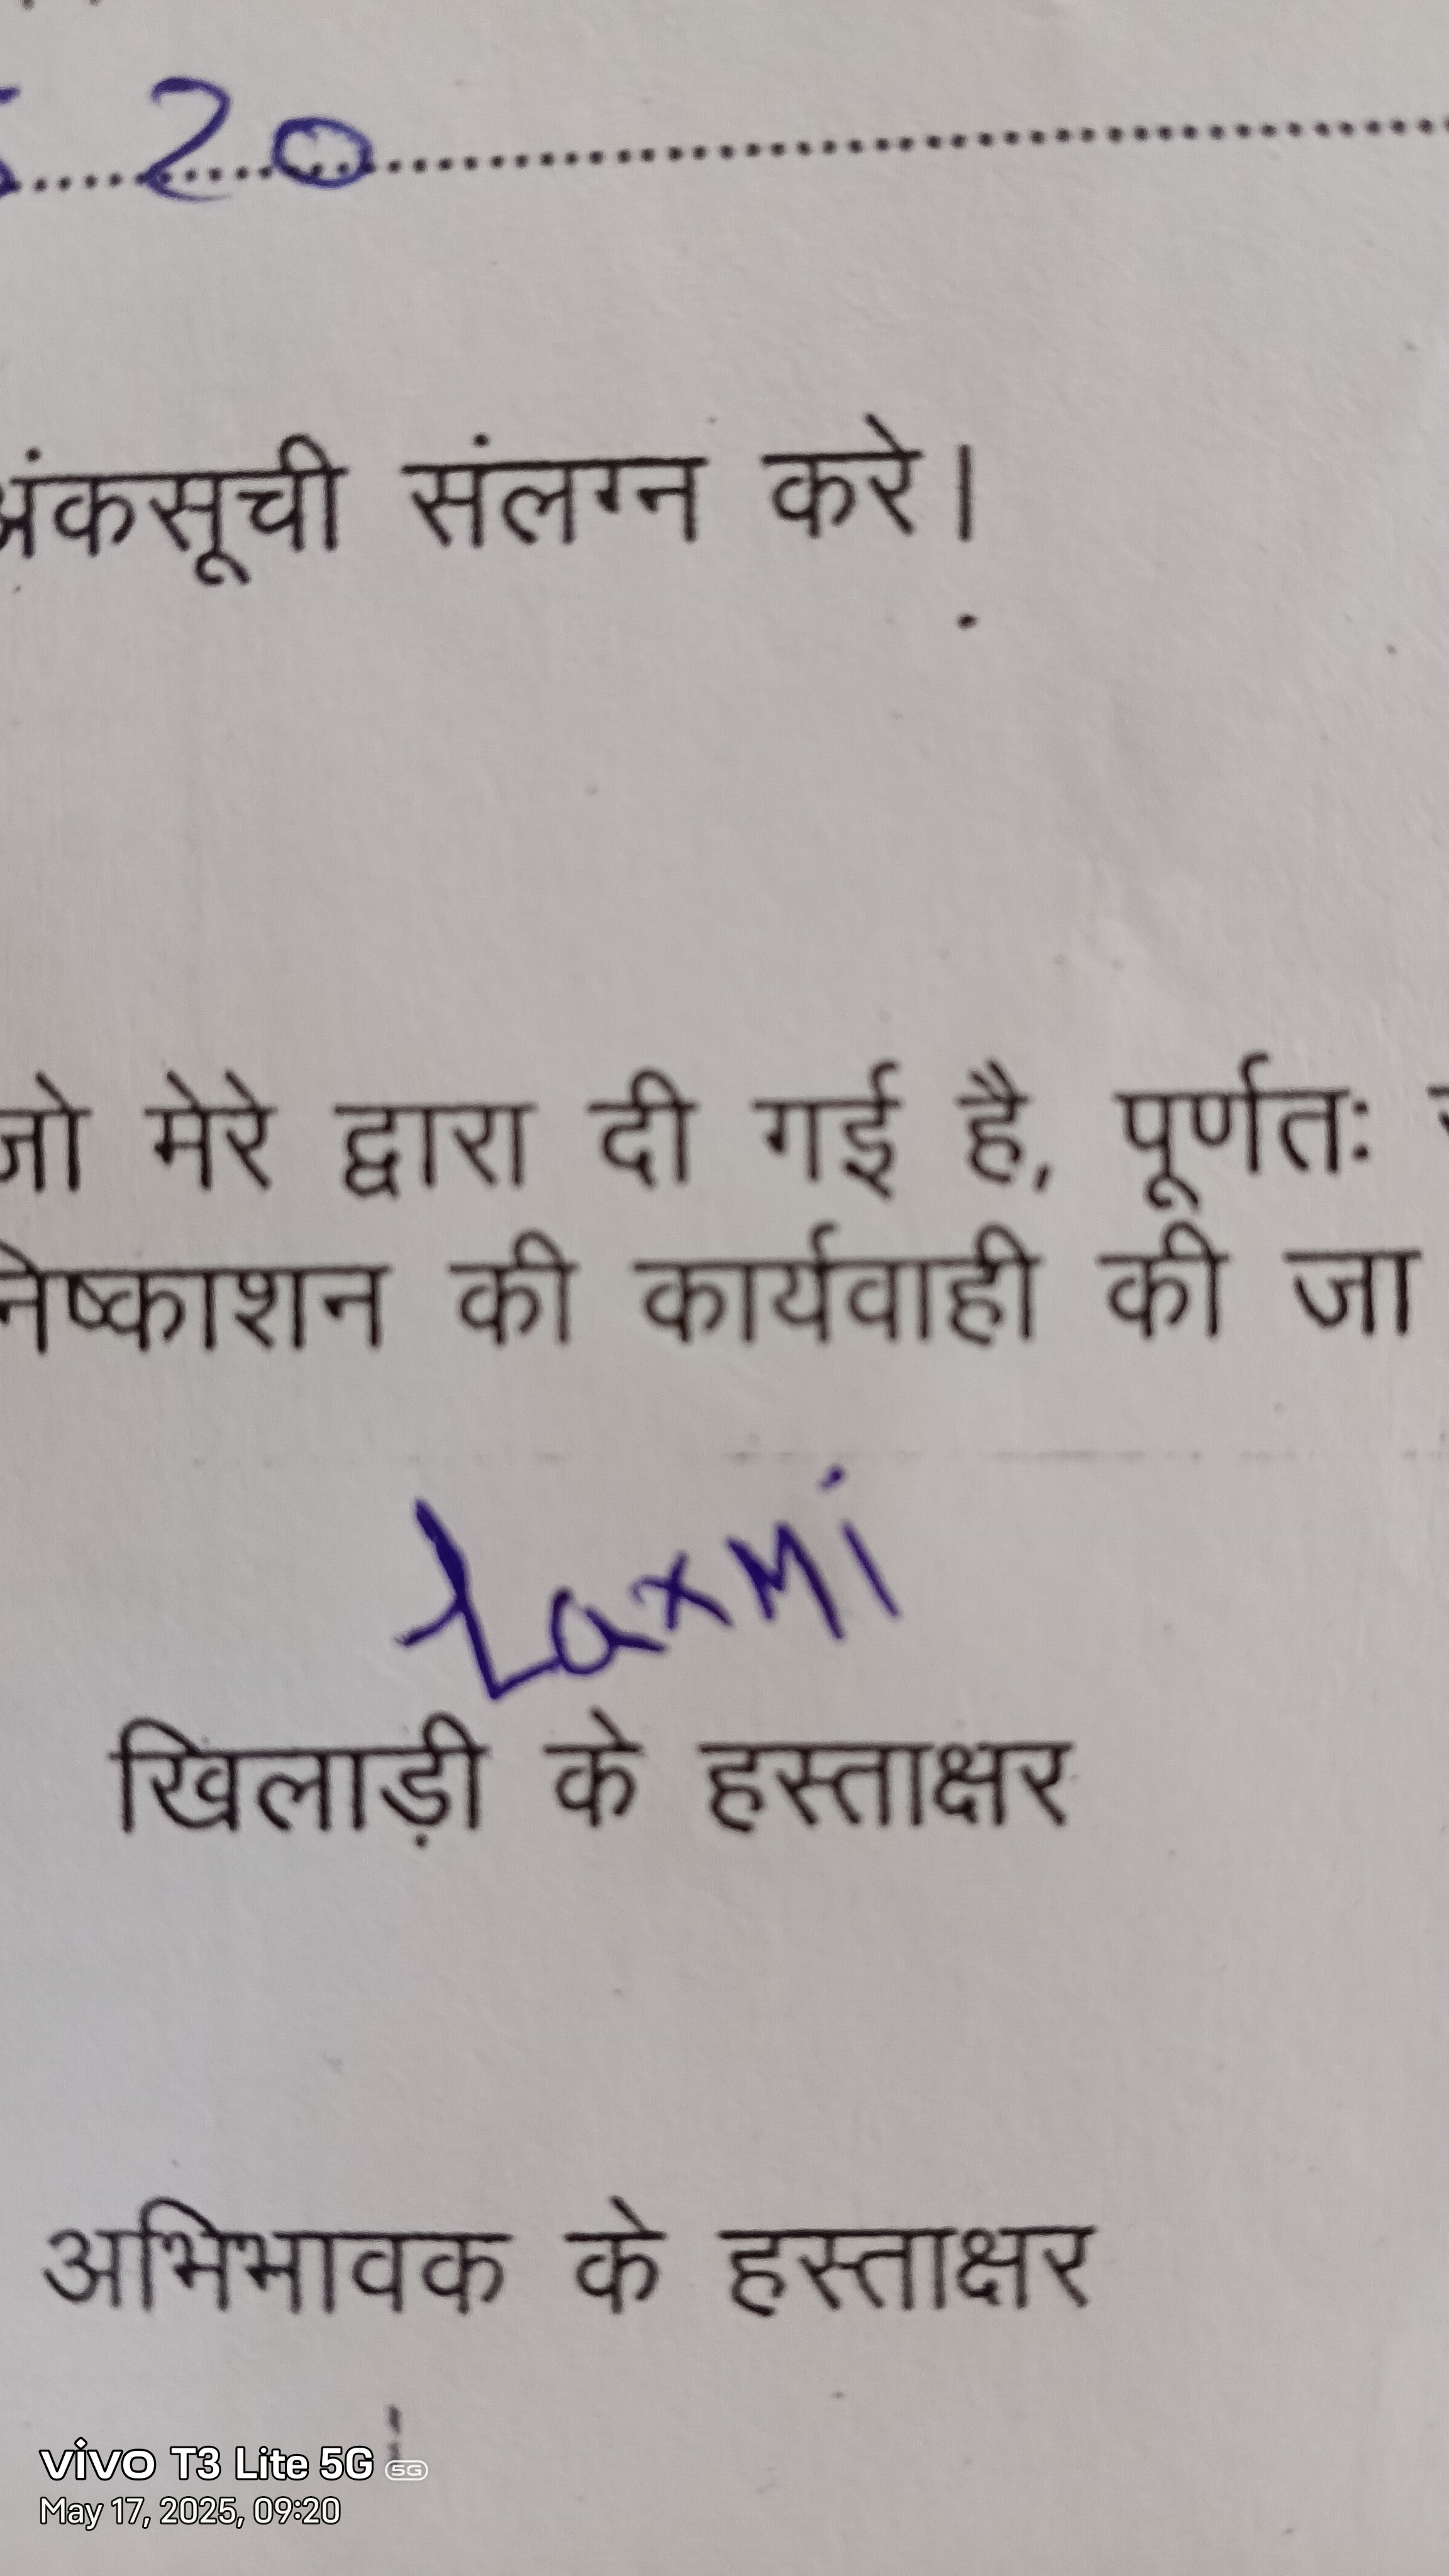 20
अंकसूची संलग्न करे।
जो मेरे द्वारा दी गई है, पूर्णतः
निष्काशन की कार्यवाही की जा
Laxmi
खिलाड़ी के हस्ताक्षर
अभिभावक के हस्ताक्षर
vivo T3 Lite 5G 5G
May 17, 2025, 09:20